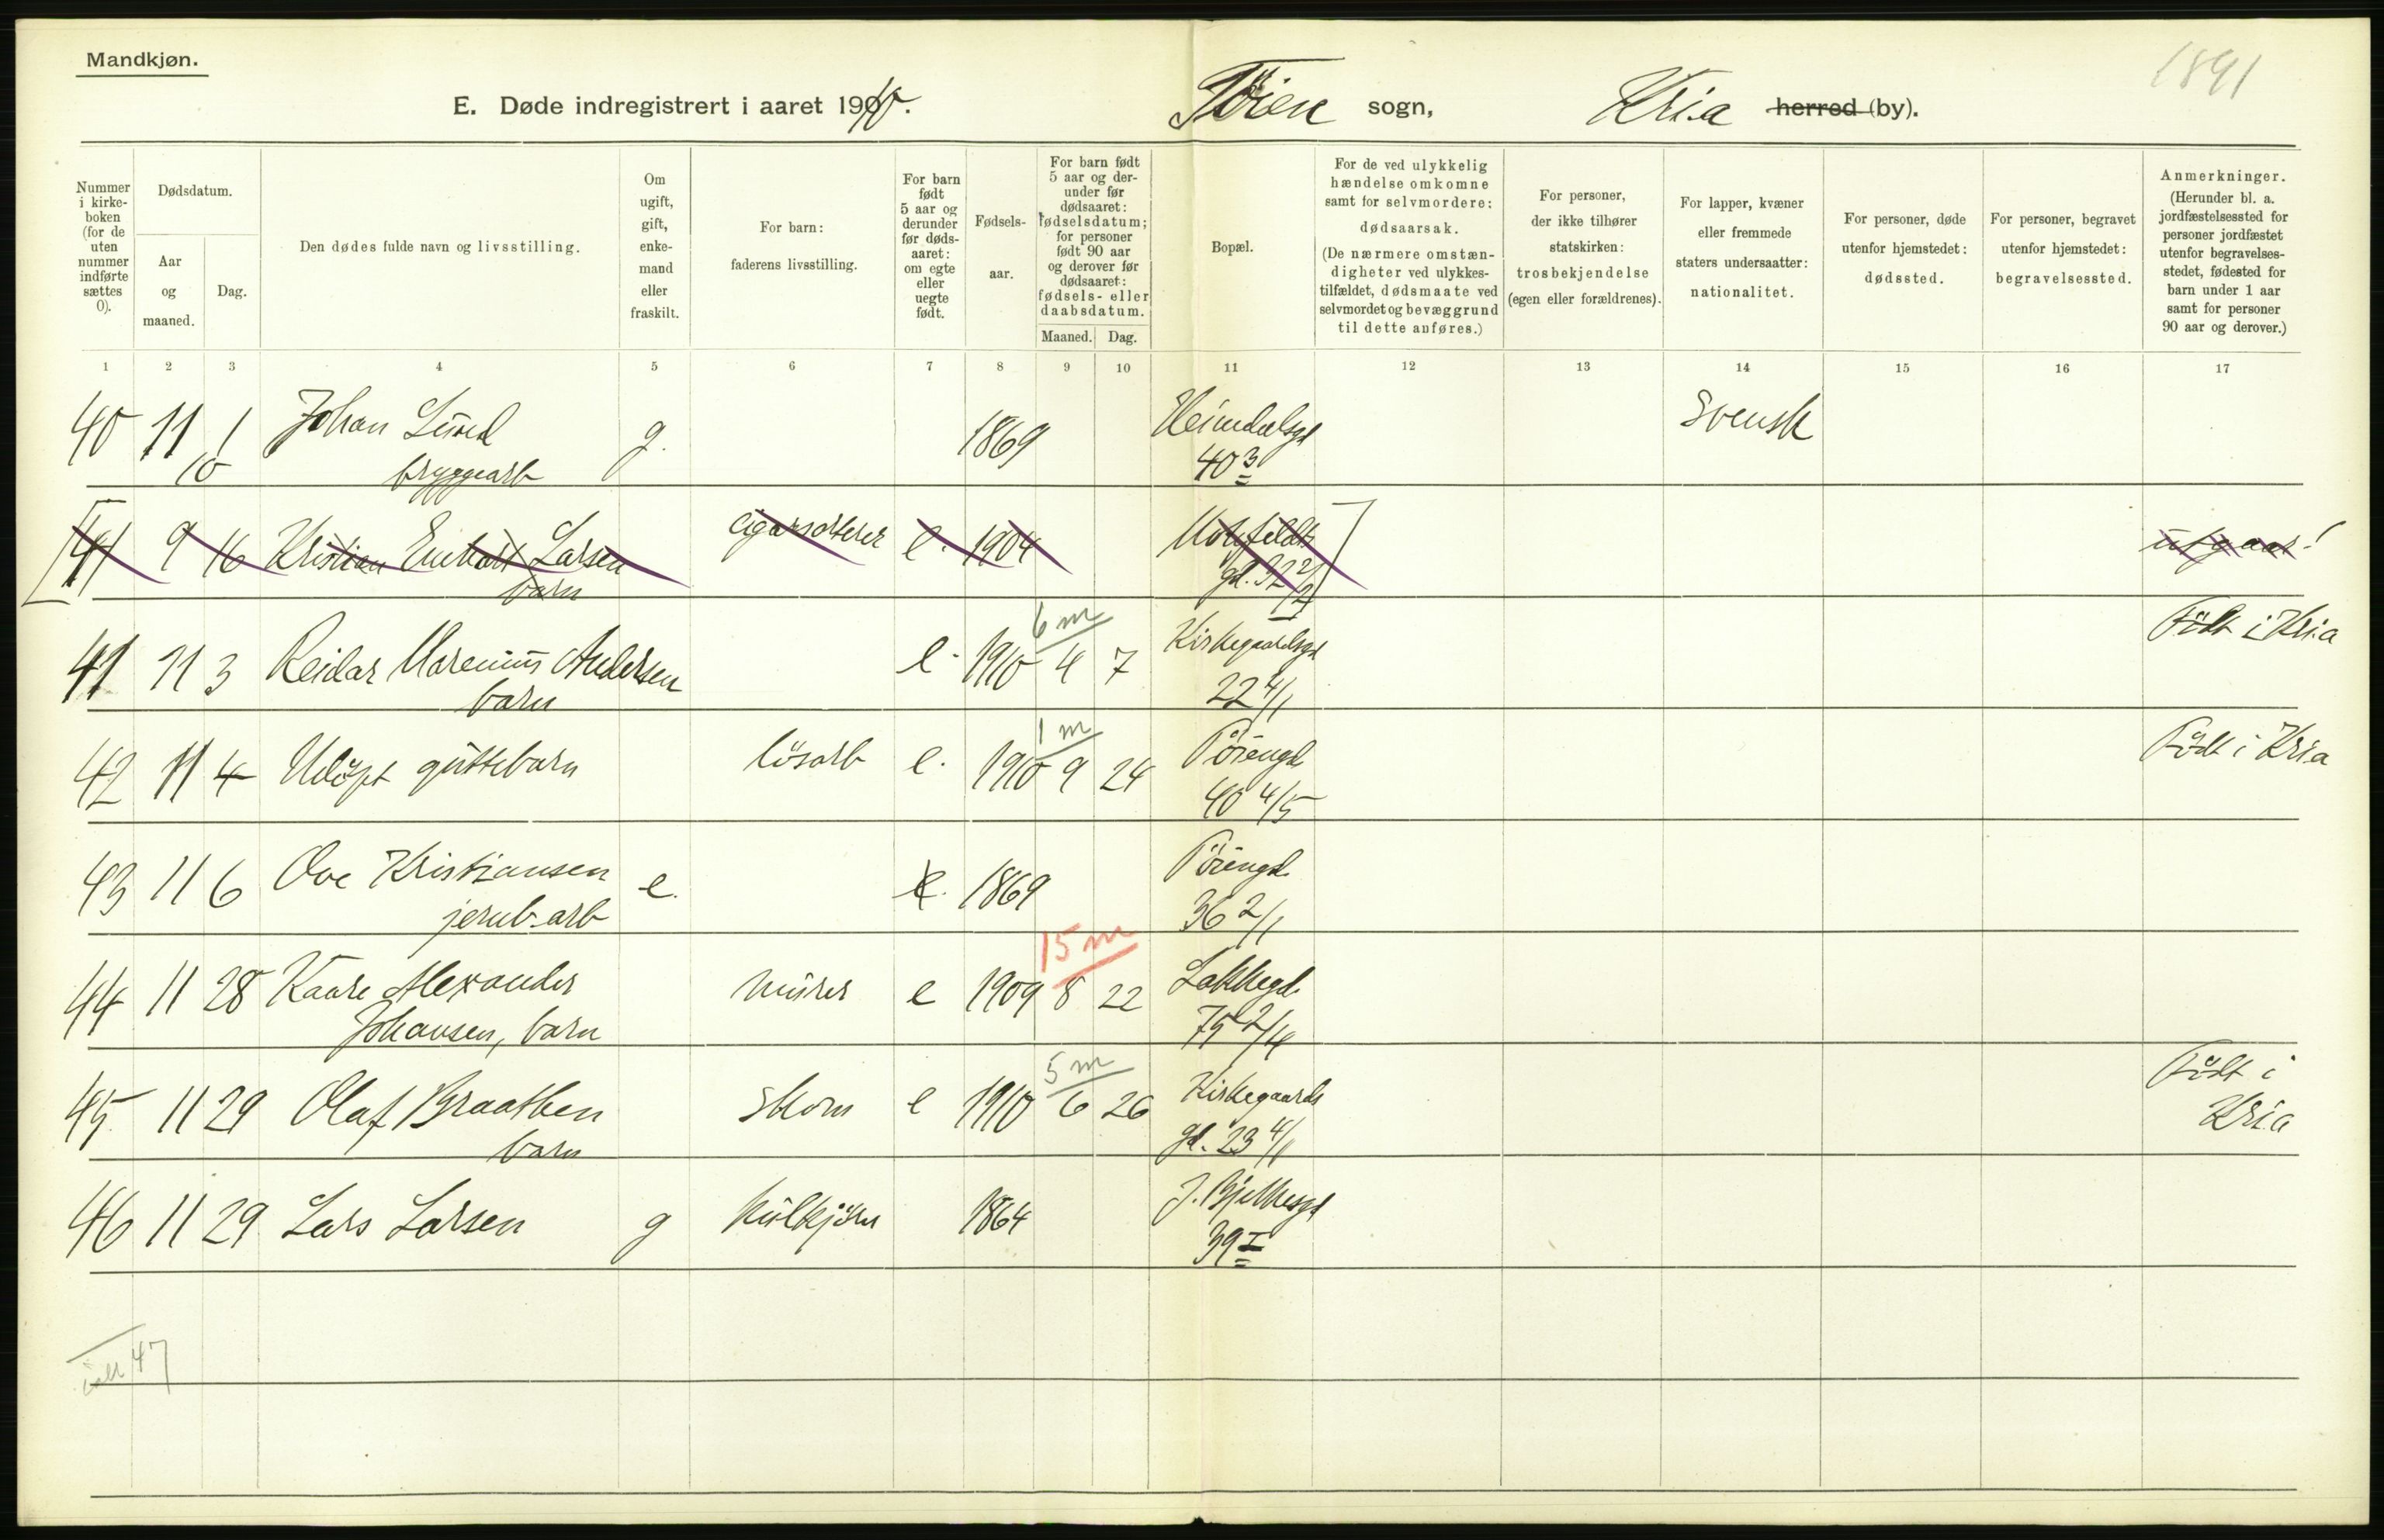 Mandkjøn.
1891
E. Døde indregistrert i aaret 1910. Tøien sogn, Kria herred (by).
Nummer i kirke- boken (for de uten nummer indførte sættes 0).
Dødsdatum.
Aar og maaned.
Dag.
Den dødes fulde navn og livsstilling.
Om ugift, gift, enke- mand eller fraskilt.
For barn: faderens livsstilling.
For barn født 5 aar og derunder før døds- aaret: om egte eller uegte født.
Fødsels- aar.
For barn født 5 aar og der- under før dødsaaret: fødselsdatum; for personer født 90 aar og derover før dødsaaret: fødsels- eller daabsdatum.
Maaned. Dag.
Bopæl.
For de ved ulykkelig hændelse omkomne samt for selvmordere: dødsaarsak. (De nærmere omstæn- digheter ved ulykkes- tilfældet, dødsmaate ved selvmordet og bevæggrund til dette anføres.)
For personer, der ikke tilhører statskirken: trosbekjendelse (egen eller forældrenes).
For lapper, kvæner eller fremmede staters undersaatter: nationalitet.
For personer, døde utenfor hjemstedet: dødssted.
For personer, begravet utenfor hjemstedet: begravelsessted.
Anmerkninger. (Herunder bl. a. jordfæstelsessted for personer jordfæstet utenfor begravelses- stedet, fødested for barn under 1 aar samt for personer 90 aar og derover.)
1 2 3 4 5 6 7 8 9 10 11 12 13 14 15 16 17
40 11 1 Johan Lund g. 1869 Heimdalsgd Svensk
10 bryggearb 40 3
41 9 16 Kristian Larsen cigarsorterer e. 1904 Motzfeldts utgaar!
barn gd. 32 2/2
6 m
41 11 3 Reidar Marenius Andersen e. 1910 4 7 Kirkegaardsgd Födt i Kria
barn 22 4/1
1 m
42 11 4 Udöpt guttebarn lösarb e. 1910 9 24 Töiengd. Födt i Kria
40 4/5
43 11 6 Ove Kristiansen e. e. 1869 Töiengd.
jernb.arb 36 2/1
15 m
44 11 28 Kaare Alexander murer e 1909 8 22 Lakkegd.
Johansen, barn 75 2/4
5 m
45 11 29 Olaf Braathen skom e 1910 6 26 Kirkegaards Födt i
barn gd. 23 4/1 Kria
46 11 29 Lars Larsen g kulkjörer 1864 J. Bjelkesgd
39 I
ialt 47